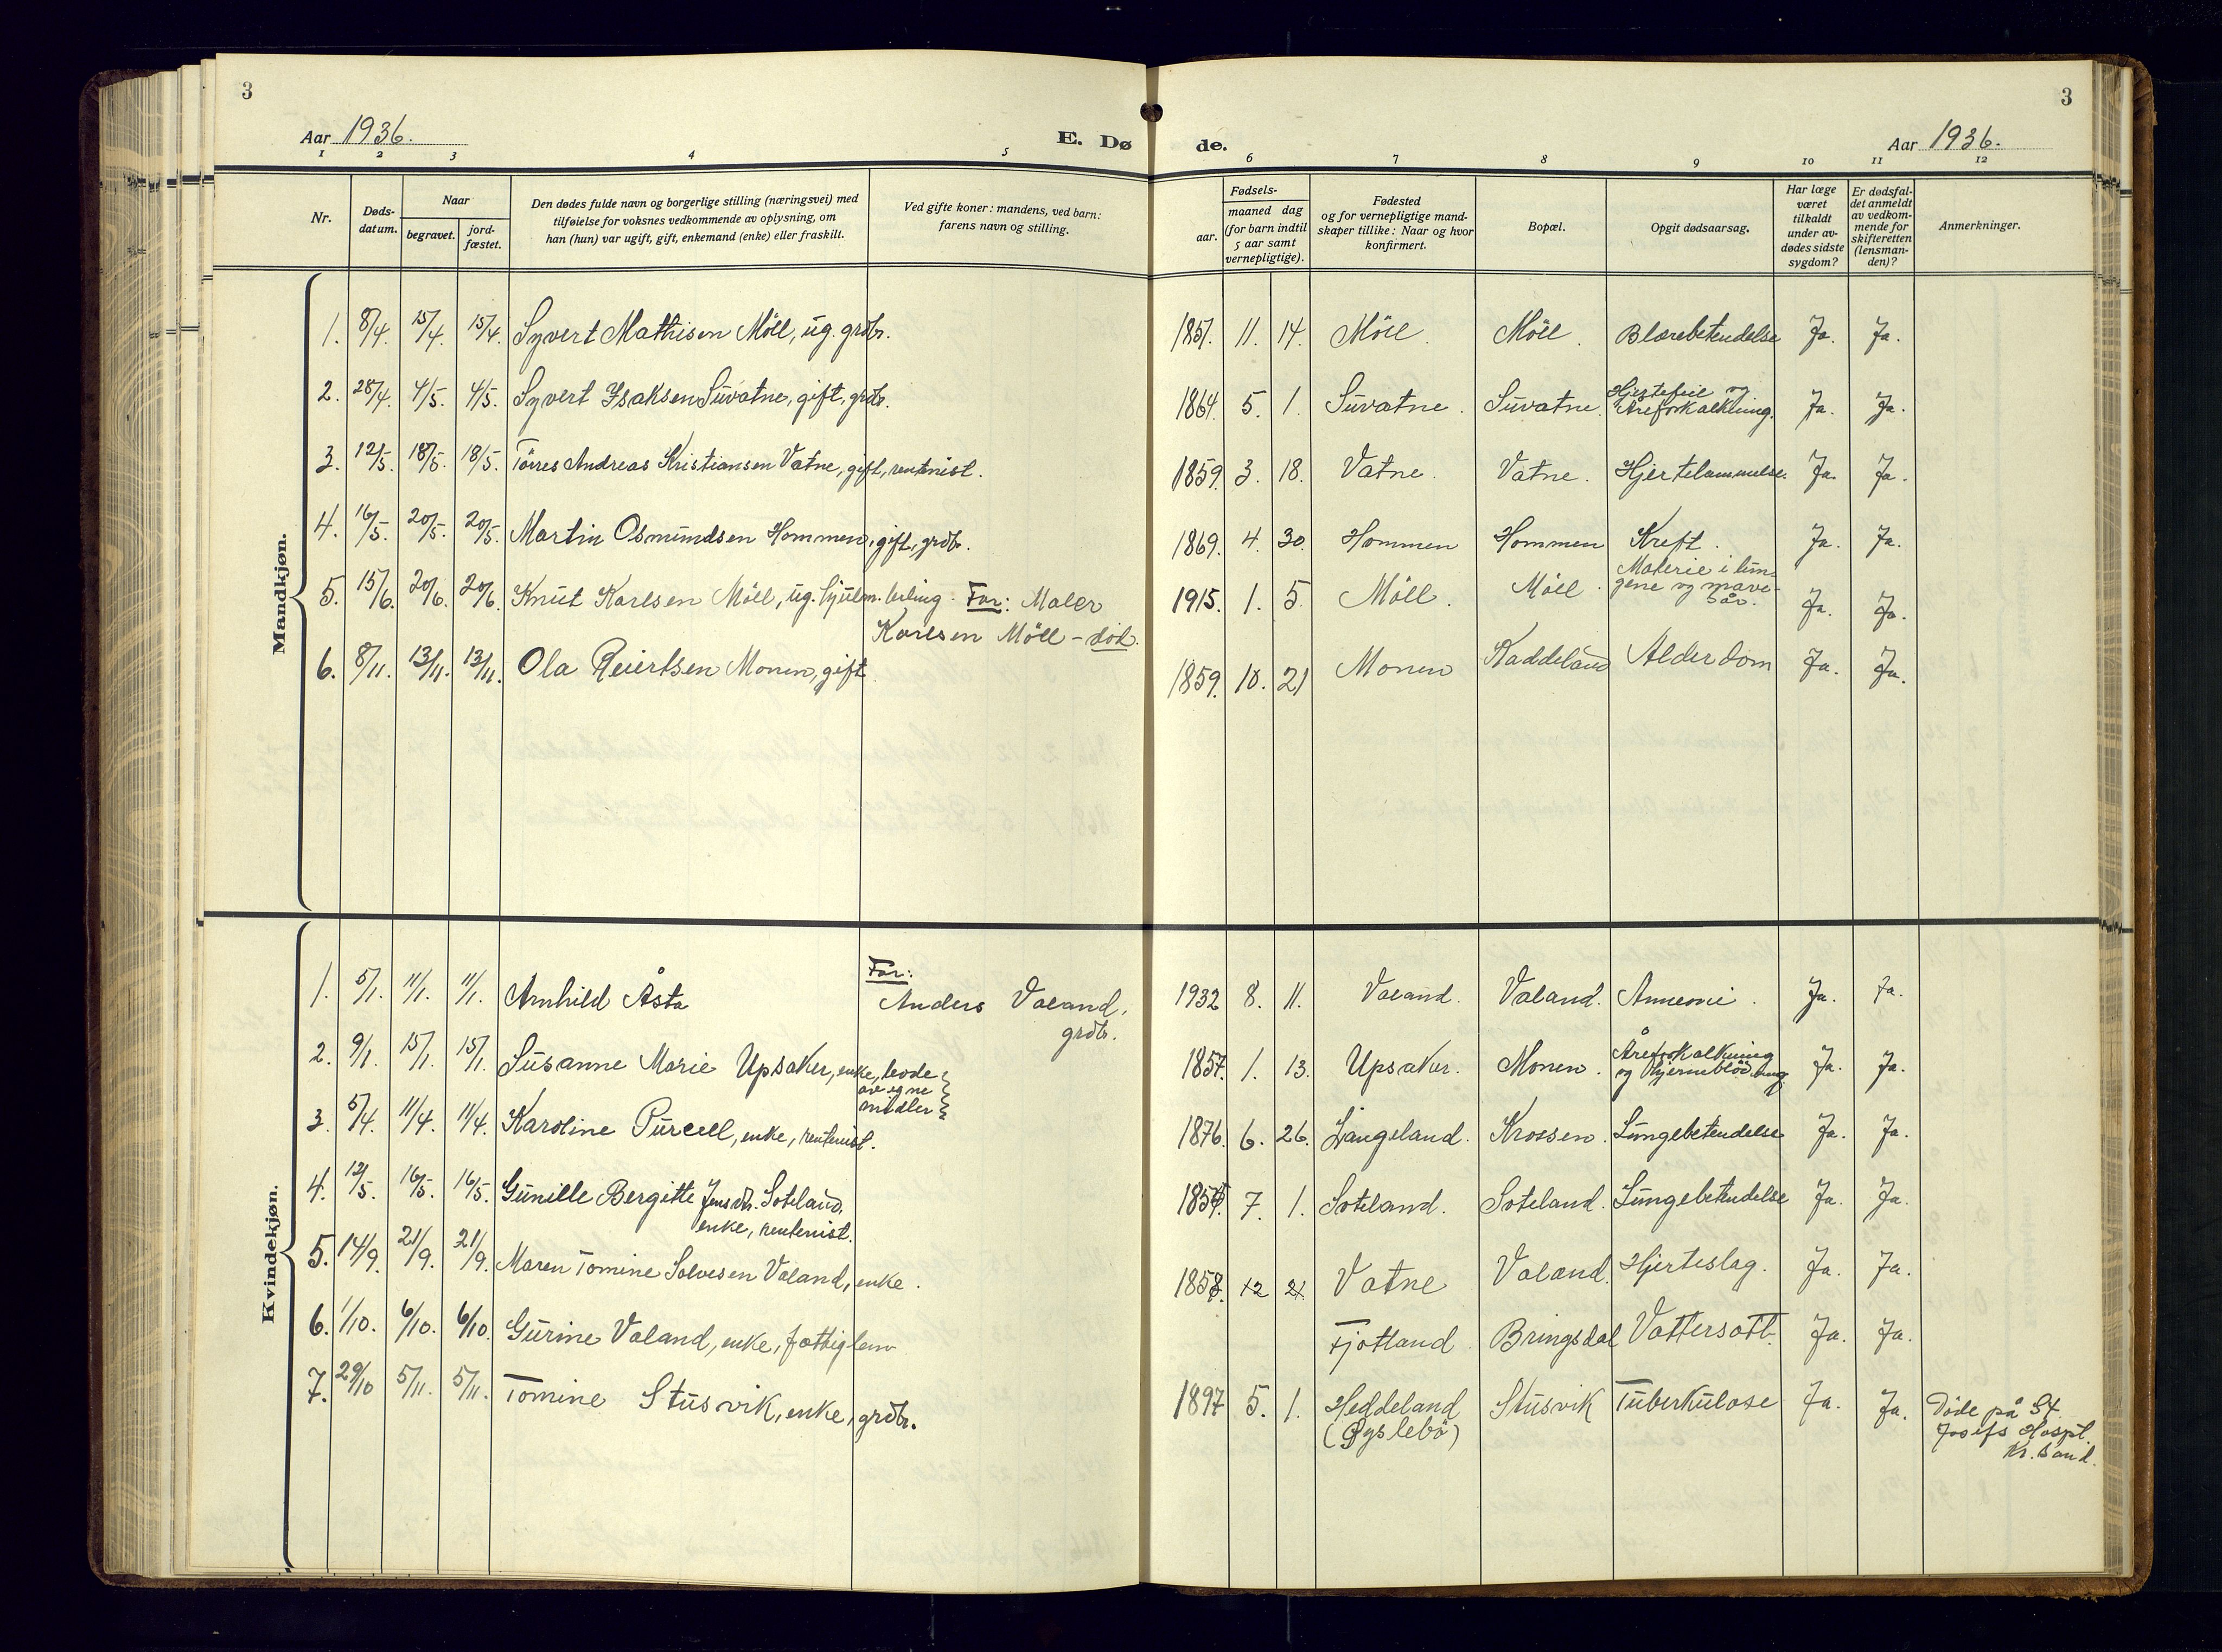 3
3
Aar 1936.
E. Dø de.
Aar 1936.
1 2 3 4 5 6 7 8 9 10 11 12
Nr.
Døds-
datum.
Naar
begravet.
jord-
fæstet.
Den dødes fulde navn og borgerlige stilling (næringsvei) med
tilføielse for voksnes vedkommende av oplysning, om
han (hun) var ugift, gift, enkemand (enke) eller fraskilt.
Ved gifte koner: mandens, ved barn:
farens navn og stilling.
Fødsels-
aar.
maaned dag
(for barn indtil
5 aar samt
vernepligtige).
Fødested
og for vernepligtige mand-
skaper tillike: Naar og hvor
konfirmert.
Bopæl.
Opgit dødsaarsag.
Har læge
været
tilkaldt
under av-
dødes sidste
sygdom?
Er dødsfal-
det anmeldt
av vedkom-
mende for
skifteretten
(lensman-
den)?
Anmerkninger.
Mandkjøn.
1. 8/4. 15/4. 15/4. Syvert Mathisen Möll, ug. grdbr. 1857. 11. 14. Möll. Möll. Blærebetendelse Ja. Ja.
2. 28/4. 4/5. 4/5. Syvert Isaksen Suvatne, gift, grdbr. 1864. 5. 1. Suvatne. Suvatne. Hjertefeil og
Åreforkalkning. Ja. Ja.
3. 12/5. 18/5. 18/5. Törres Andreas Kristiansen Vatne, gift, rentenist. 1859. 3. 18. Vatne. Vatne. Hjertelammelse. Ja. Ja.
4. 16/5. 20/5. 20/5. Martin Osmundsen Hommen, gift, grdbr. 1869. 4. 30. Hommen Hommen Kreft. Ja. Ja.
5. 15/6. 20/6. 20/6. Knut Karlsen Möll, ug. hjulm. Far: Maler
Karlsen Möll - 1915. 1. 5 Möll. Möll. Materie i lun-
gene og mave-
sår. Ja. Ja.
6. 8/11. 13/11. 13/11. Ola Reiertsen Monen, gift 1859. 10. 21 Monen Kaddeland Alderdom Ja. Ja.
Kvindekjøn.
1. 5/1. 11/1. 11/1. Arnhild Åsta Far:
Anders Valand,
grdbr. 1932 8. 11. Valand. Valand. Annemi. Ja. Ja.
2. 9/1. 15/1. 15/1. Susanne Marie Upsaker, enke, levde
av egne
midler 1857. 1. 13. Upsaker. Monen. Åreforkalkning
og hjerneblödning Ja. Ja.
3. 5/4. 11/4. 11/4. Karoline Purcell, enke, rentenist. 1876. 6. 26. Langeland. Krossen. Lungebetendelse Ja. Ja.
4. 12/5. 16/5. 16/5. Gunille Bergitte Jensdtr. Soteland,
enke, rentenist. 7. 1. Soteland. Soteland. Lungebetendelse Ja. Ja.
5. 14/9. 21/9. 21/9. Maren Tomine Salvesen Valand, enke. 1858. 12 21. Vatne Valand. Hjerteslag. Ja. Ja.
6. 1/10. 6/10. 6/10. Gurine Valand, enke, fattiglem Fjotland Bringsdal Vattersott. Ja. Ja.
7. 29/10 5/11. 5/11. Tomine Stusvik, enke, grdbr. 1897 5. 1. Heddeland
(Gyslebö) Stusvik Tuberkulose Ja. Ja. Döde på St.
Josefs Hospt.
Kr.sand.